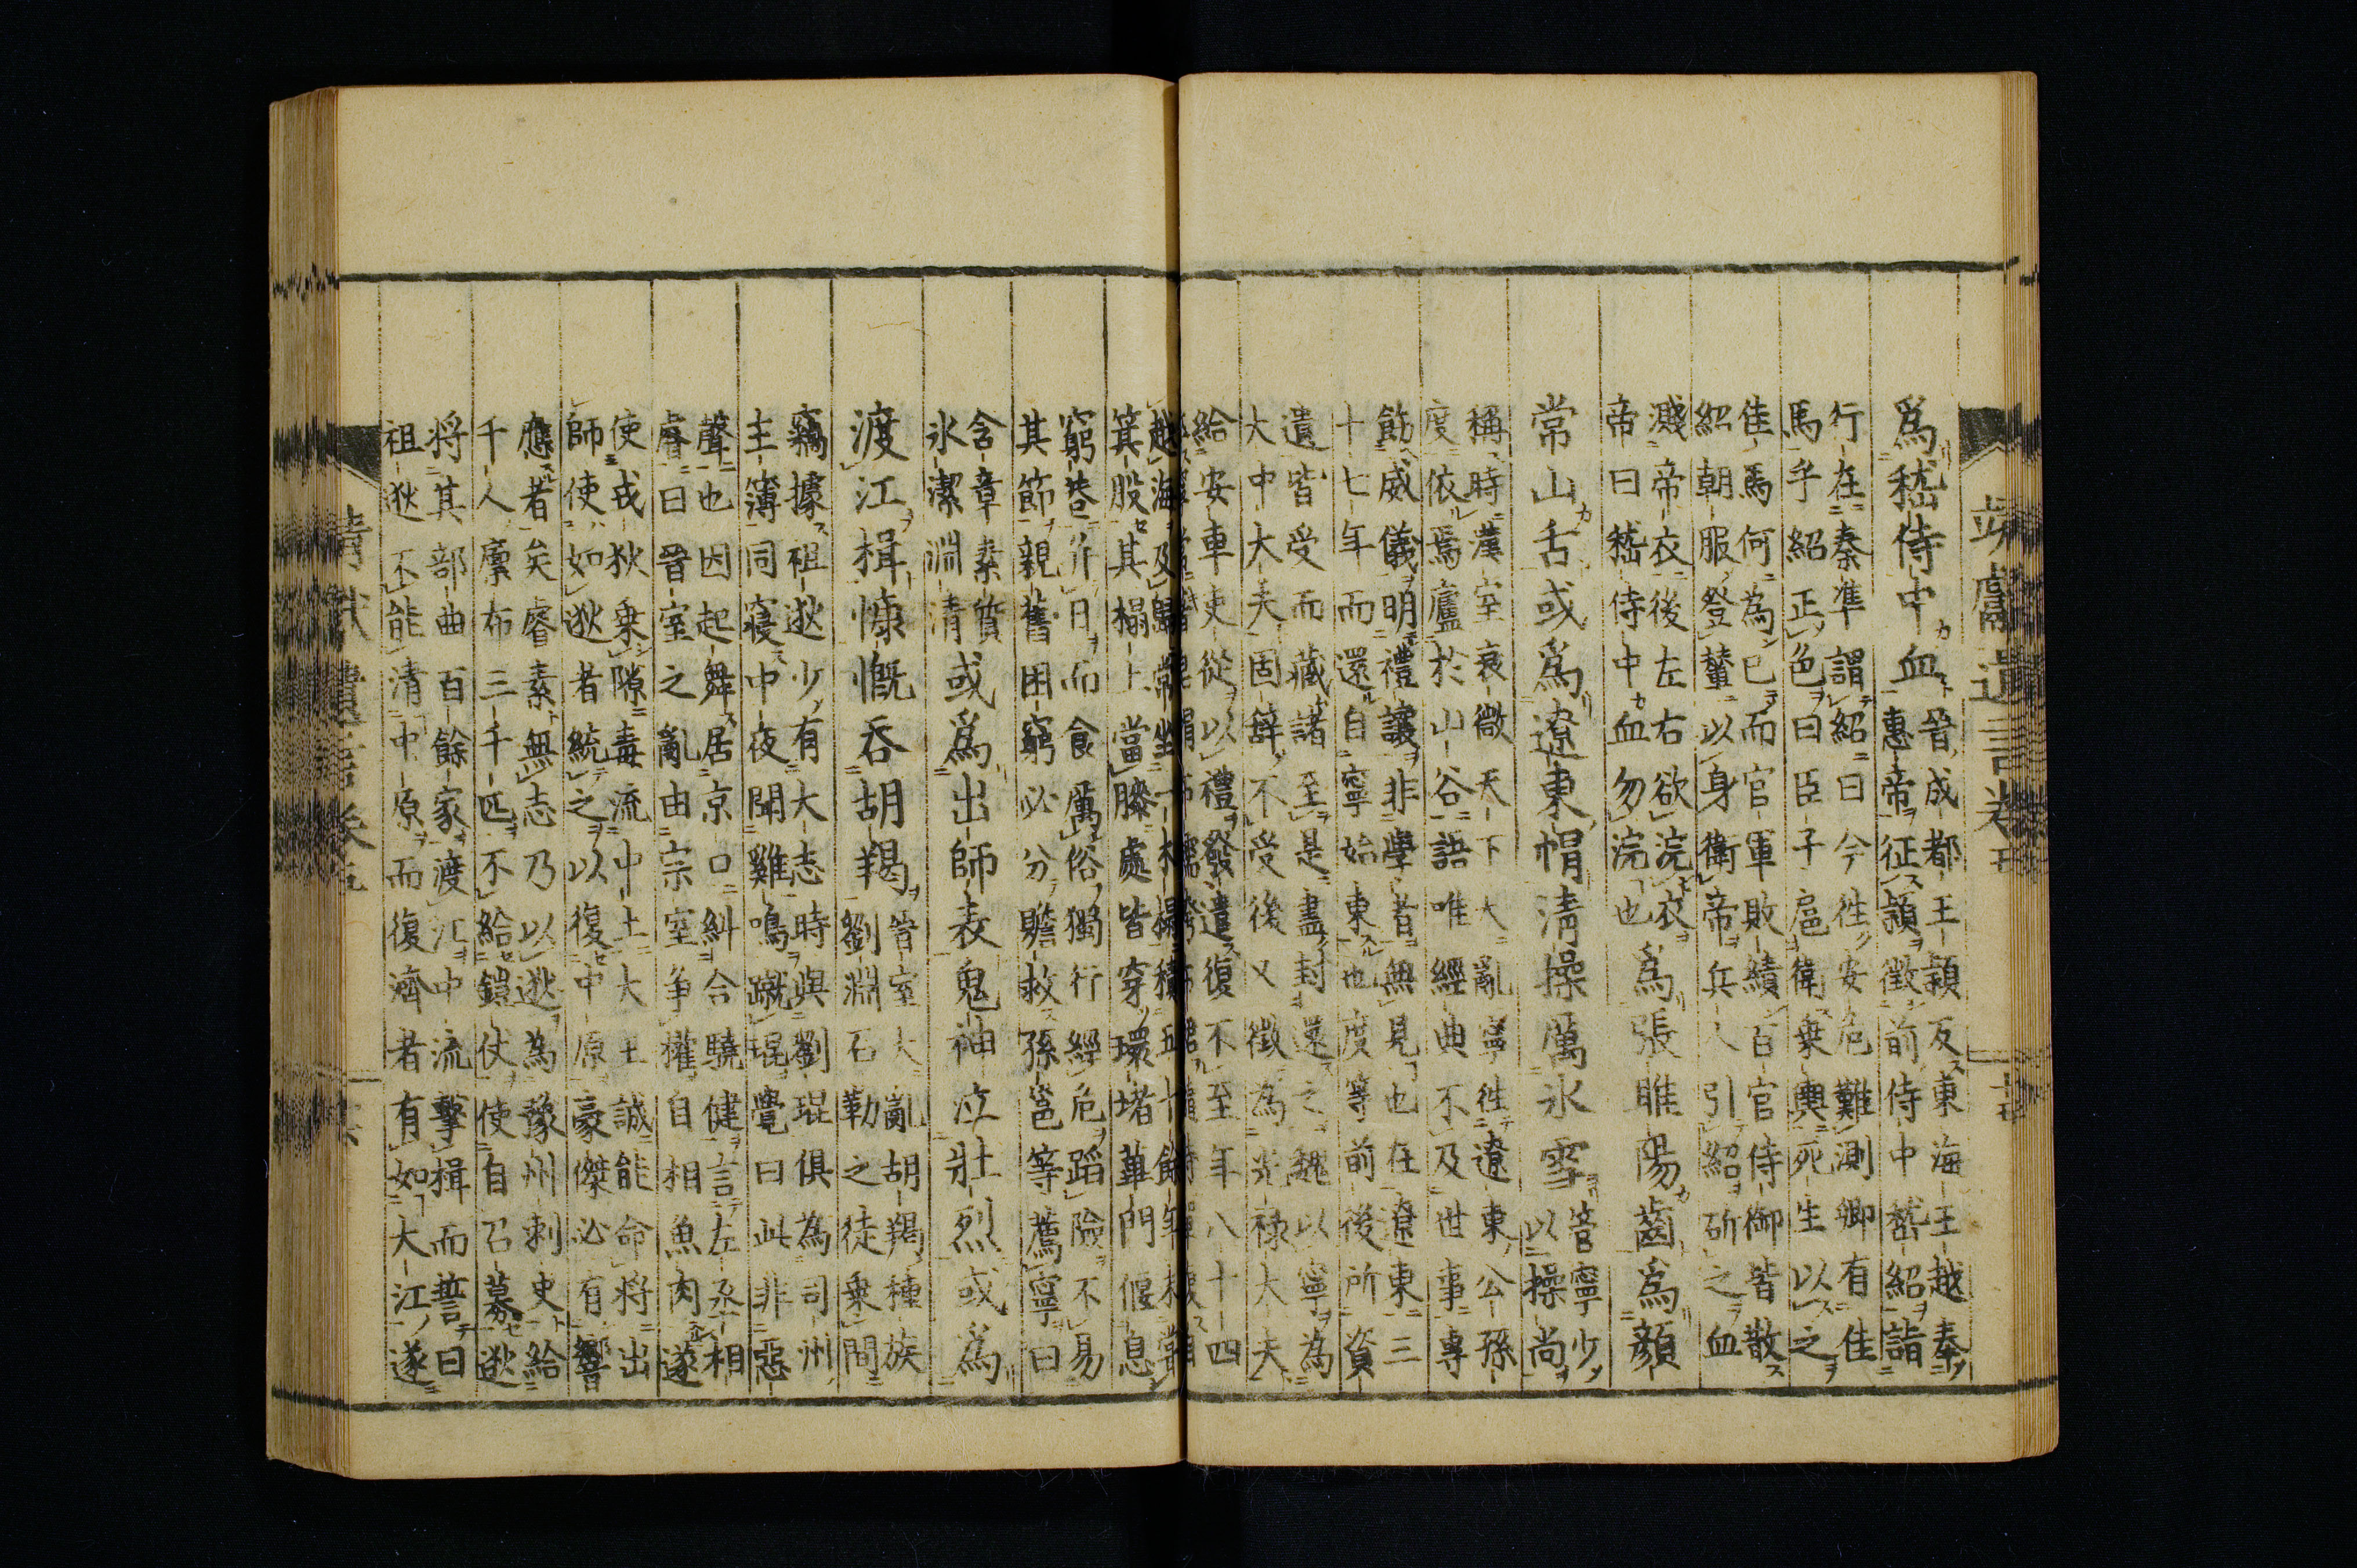 靖獻遺言卷五 十五
爲嵇侍中血
晉成都王頴反東海王越奉
惠帝征頴徵前侍中嵇紹詣
行在秦準謂紹曰今徃安危難測卿有佳
馬乎紹正色曰臣子扈衛乗輿死生以之
佳馬何為已而官軍敗績百官侍御皆散
紹朝服登輦以身衛帝兵人引紹斫之血
濺帝衣後左右欲浣衣
帝曰嵇侍中血勿浣也
爲張睢陽齒爲顏
常山舌或爲遼東帽淸操厲氷雪
管寧少
以操尚
稱時漢室衰微天下大亂寧徃遼東公孫
度依焉廬於山谷語唯經典不及世事專
飭威儀明禮讓非學者無見也在遼東三
十七年而還自寧始東也度等前後所資
遺皆受而藏諸至是盡封還之魏以寧為
大中大夫固辭不受後又徵為光祿大夫
給安車吏從以禮發遣復不至年八十四
越海及歸常坐一木榻積五十餘年未嘗
箕股其榻上當膝處皆穿環堵蓽門偃息
窮巷并日而食厲俗獨行經危蹈險不易
其節親舊困窮必分贍救孫邕等薦寧曰
含章素質
氷潔淵清
或爲出師表鬼神泣壯烈或爲
渡江楫慷慨呑胡羯
晉室大亂胡羯種族
劉淵石勒之徒乗間
竊據祖逖少有大志時與劉琨俱為司州
主簿同寢中夜聞雞鳴蹴琨覺曰此非惡
聲也因起舞居京口糾合驍健言左丞相
睿曰晉室之亂由宗室爭權自相魚肉遂
使戎狄乗隙毒流中土大王誠能命將出
師使如逖者統之以復中原豪傑必有響
應者矣睿素無志乃以逖為豫州刺史給
千人廩布三千匹不給鎧仗使自召募逖
將其部曲百餘家渡江中流擊楫而誓曰
祖逖不能清中原而復濟者有如大江遂